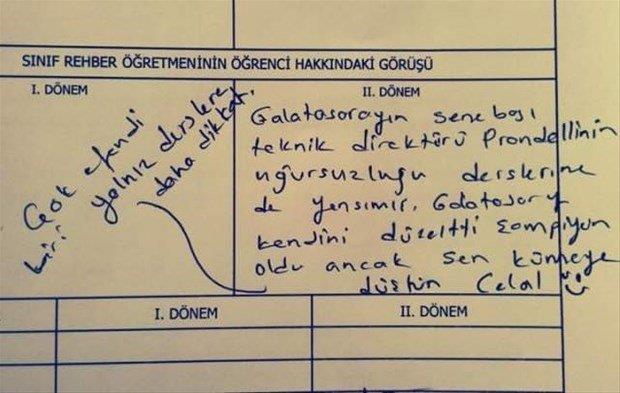 SINIF REHBER ÖĞRETMENİNİN ÖĞRENCİ HAKKINDAKİ GÖRÜŞÜ
I. DÖNEM
Çok efendi
biri
yalnız derslere
daha dikkat.
II. DÖNEM
Galatasarayın sene başı
teknik direktörü Prandellinin
uğursuzluğu derslerine
de yansımış. Galatasaray
kendini düzeltti şampiyon
oldu ancak sen kümeye
düştün Celal
I. DÖNEM
II. DÖNEM